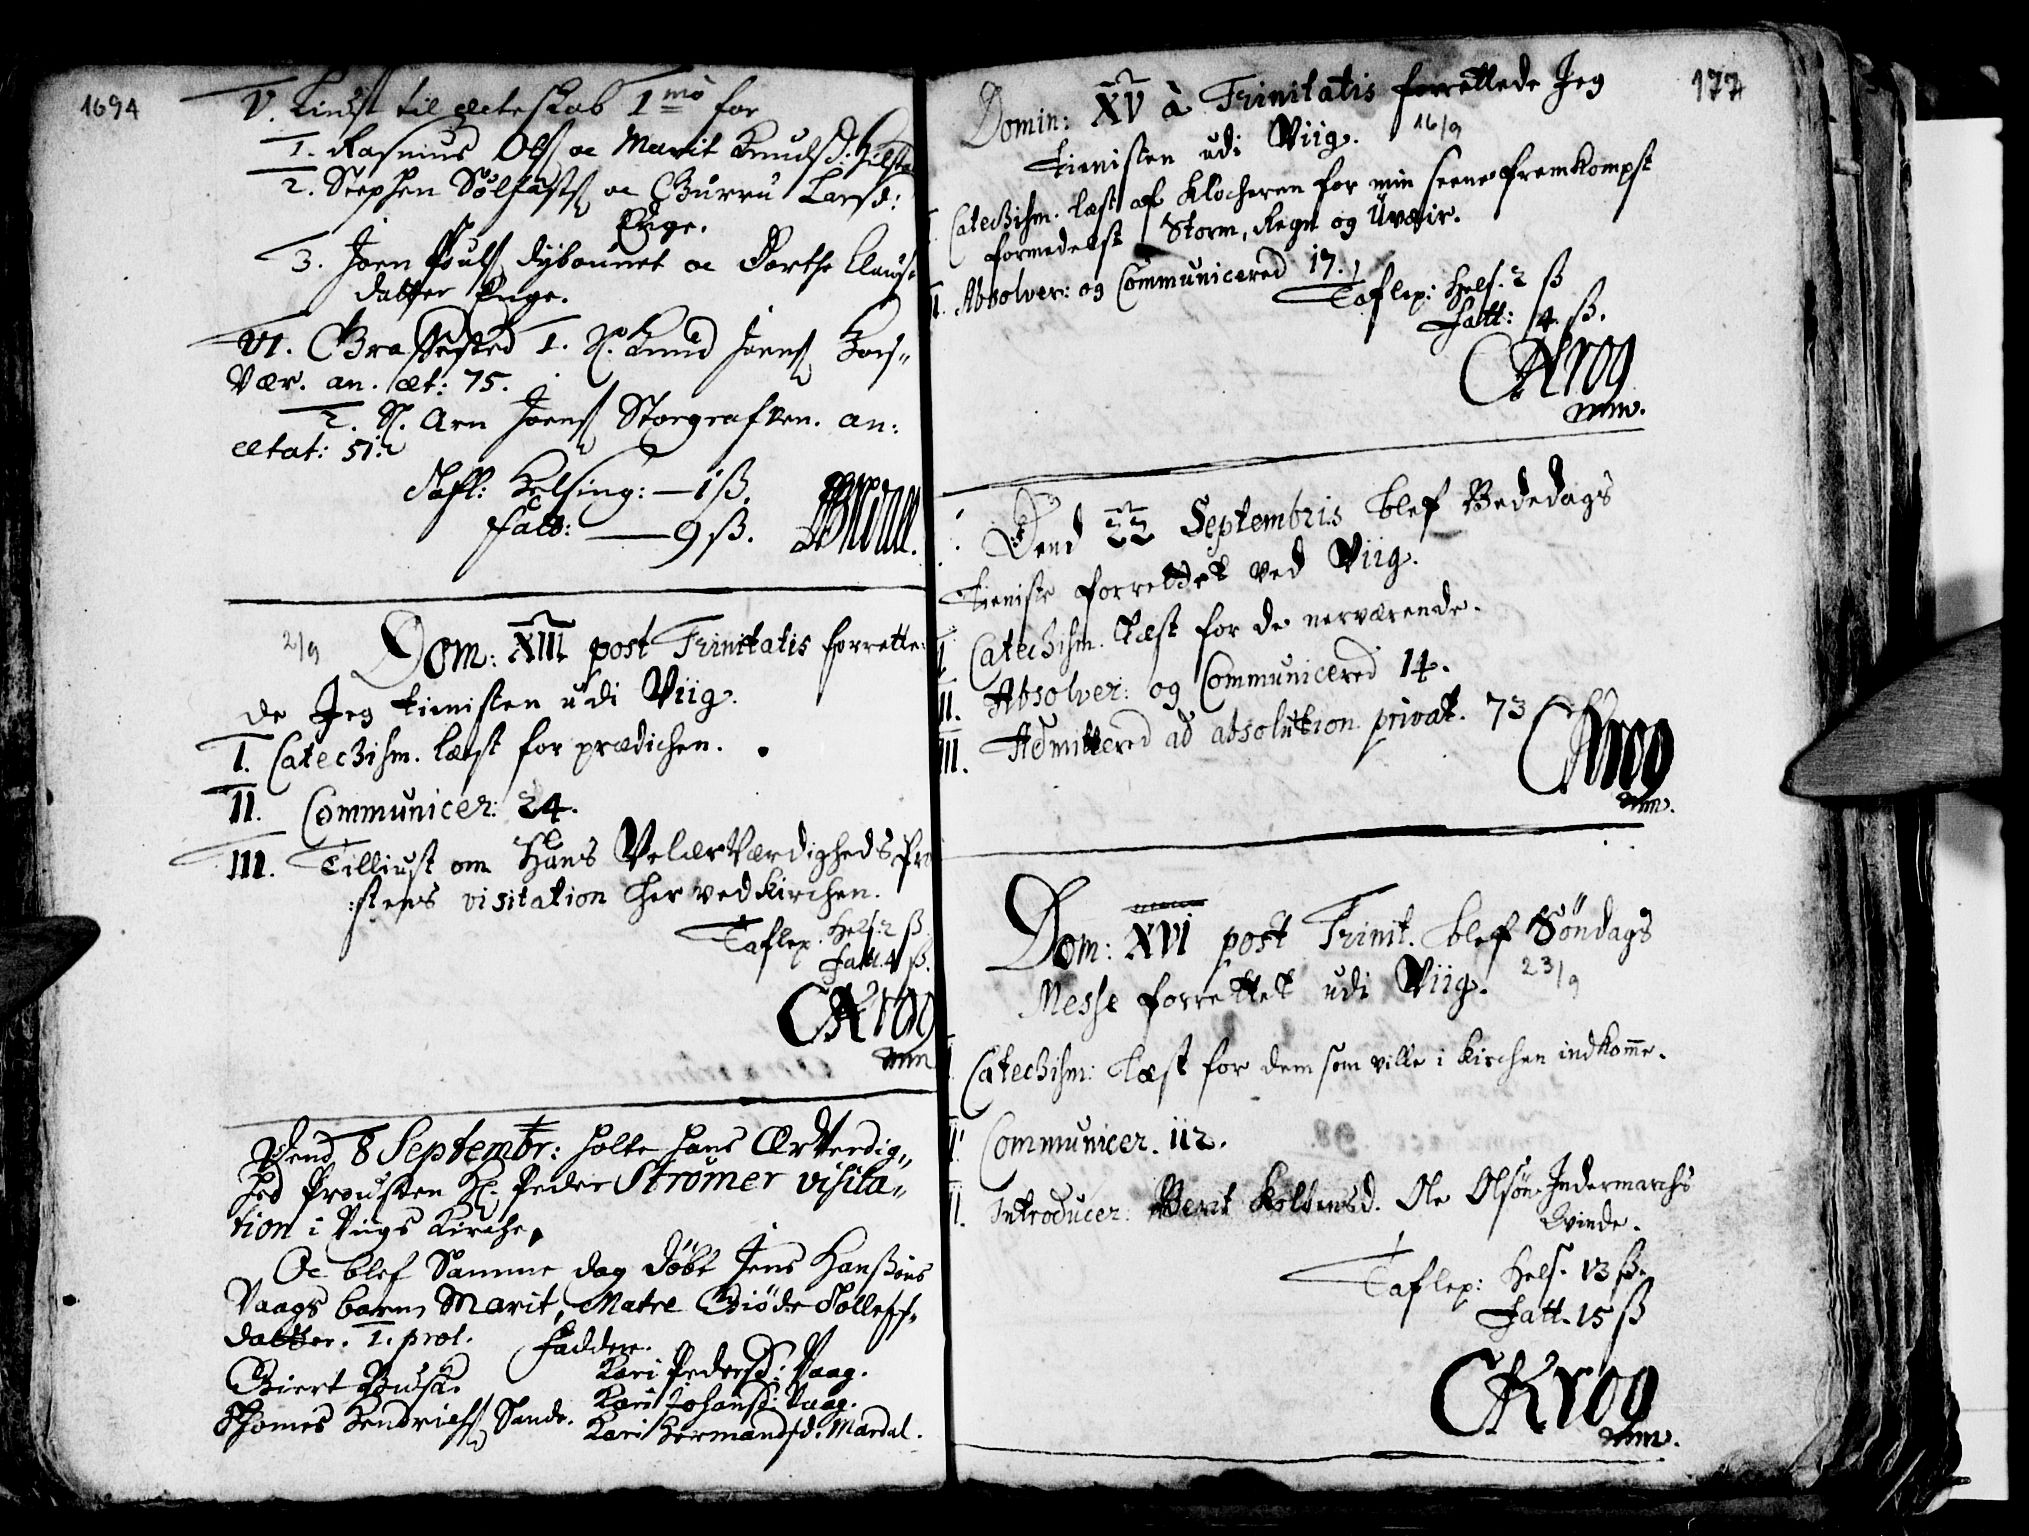 1694
V. Liust til Ecteskab 1mo for
1. Rasmus Ols: oc Marit Knudsd:
2. Stephen Sølfästs: oc Gurru Larsd:
Enge.
3. Joen Pouls: Dybauuet oc Dorthe Claus-
datter Enge.
VI. Graffæsted 1. S. Knud Joens:
Vær. an. æt: 75.
2. S. Arn Joens: Storgrafven. an:
ætat: 51:
Tafl: Helsing: — 1 ß.
Fatt: — 9 ß.
2/9
Dom: XIII post Trinitatis forrette-
de Jeg tienisten udi Viig.
I. Catechism. læst for prædichen.
II. Communicer: 24.
III. Tilliust om Hans VelærVærdigheds Pro
:stens visitation her ved Kirchen.
Taflep. Hels: 2 ß.
Fatt. 4 ß.
CKrog
mm
Dend 8 Septembr: holte hans ÆrVerdig-
hed Prousten Hr. Peder Strømer visita-
tion i Viigs Kirche,
Oc blef Samme dag døbt Jens Hanßøns
Vaags barn Marit, Matre Giøde Tollefs-
datter. 1. prol. Faddere.
Giert Busk. Kari Pedersd: Vaag.
Thomes Hendrichs: Sande. Kari Johansd: Vaag.
Kari Hermandsd: Mardal.
177
Domin: XV à Trinitatis forrettede Jeg
tienisten udi Viig. 16/9
I. Catechism. læst af Klocheren for min seene fremkompst
formedelst Storm, Regn og Uvæir.
II. Absolver: og Communicered 17.
Taflep: Hels: 2 ß
Fatt: 4 ß.
CKrog
mm.
Dend 22 Septembris blef Bededags
tieniste forrettet ved Viig.
I. Catechism. læst for de nerværende.
II. Absolver: og Communicered 14.
III. Admittered ad absolution privat. 73
CKrog
mm.
Dom: XVI post Trinit. blef Söndags
Messe forrettet udi Viig. 23/9
I. Catechism: læst for dem som ville i Kirchen indkomme.
II. Communicer. 112.
III. Introducer: Berit Koltensd. Ole Olsøn Indermarchs
Qvinde.
Taflep: Hels. 13 ß.
Fatt. 15 ß
CKrog
mm.